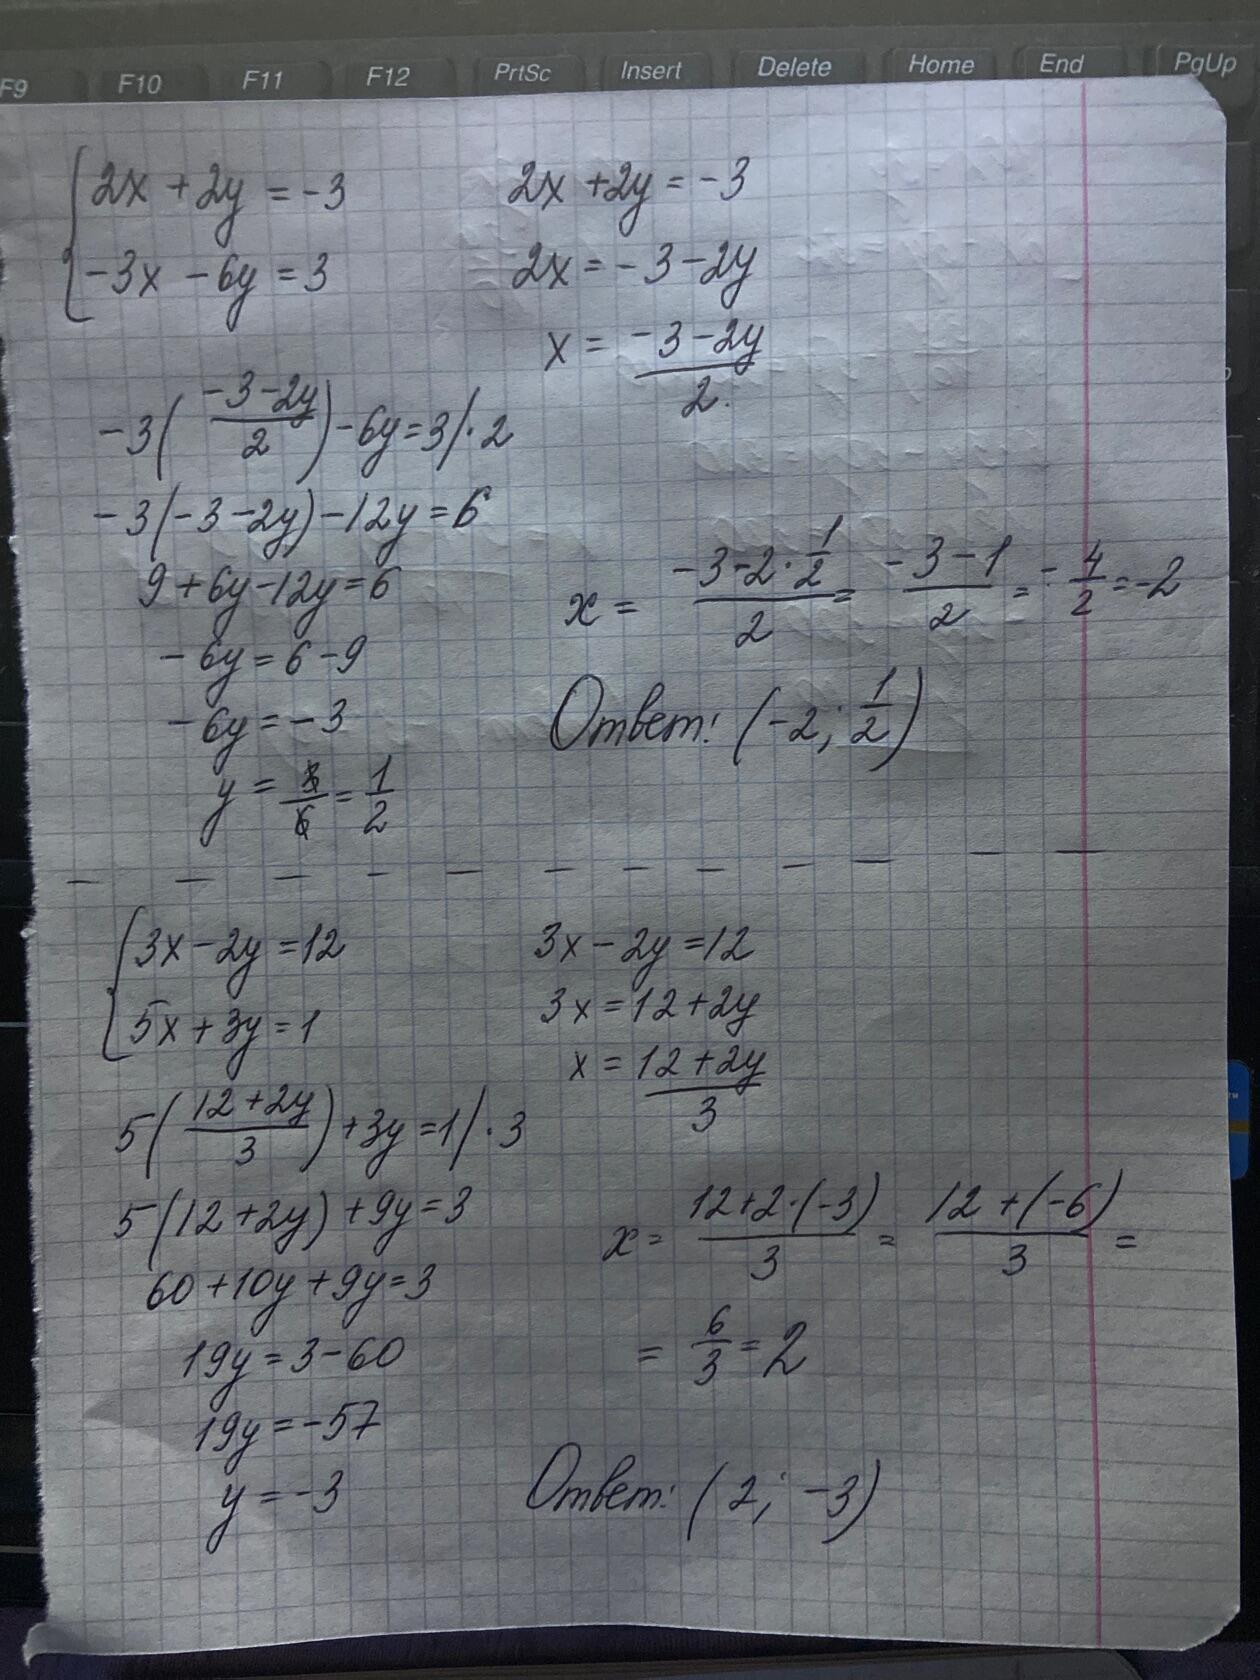 F9 F10 F11 F12 PrtSc Insert Delete Home End PgUp
{2x + 2y = -3
-3x - 6y = 3
2x + 2y = -3
2x = -3 - 2y
x = (-3 - 2y)/2.
-3((-3-2y)/2) - 6y = 3 | · 2
-3(-3-2y) - 12y = 6
9 + 6y - 12y = 6
-6y = 6 - 9
-6y = -3
y = 3/6 = 1/2
x = (-3 - 2 · 1/2)/2 = (-3 - 1)/2 = -4/2 = -2
Ответ: (-2; 1/2)
{3x - 2y = 12
5x + 3y = 1
3x - 2y = 12
3x = 12 + 2y
x = (12 + 2y)/3
5((12+2y)/3) + 3y = 1 | · 3
5(12 + 2y) + 9y = 3
60 + 10y + 9y = 3
19y = 3 - 60
19y = -57
y = -3
x = (12 + 2 · (-3))/3 = (12 + (-6))/3 =
= 6/3 = 2
Ответ: (2; -3)